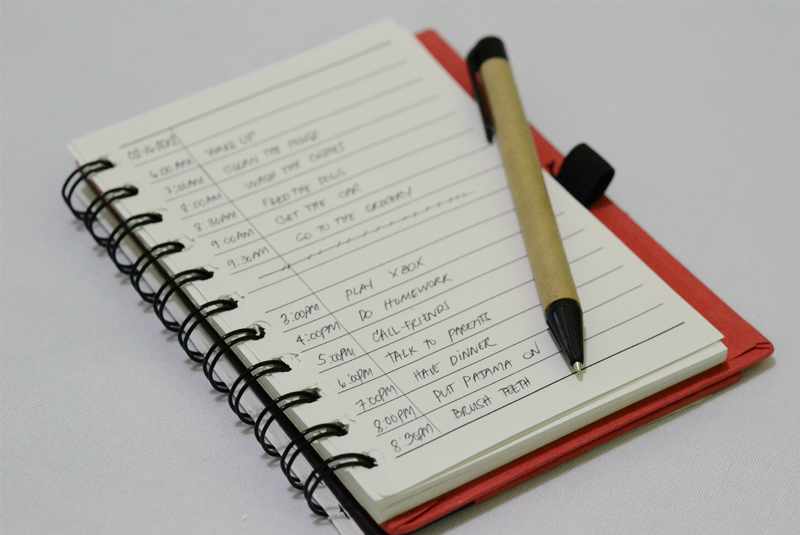 02-15-2012
6:00AM WAKE UP
7:00AM CLEAN THE HOUSE
8:00AM WASH THE DISHES
8:30AM FEED THE DOGS
9:00AM GET THE CAR
9:30AM GO TO THE GROCERY
3:00PM PLAY XBOX
4:00PM DO HOMEWORK
5:00PM CALL FRIENDS
6:00PM TALK TO PARENTS
7:00PM HAVE DINNER
8:00PM PUT PAJAMA ON
8:30PM BRUSH TEETH